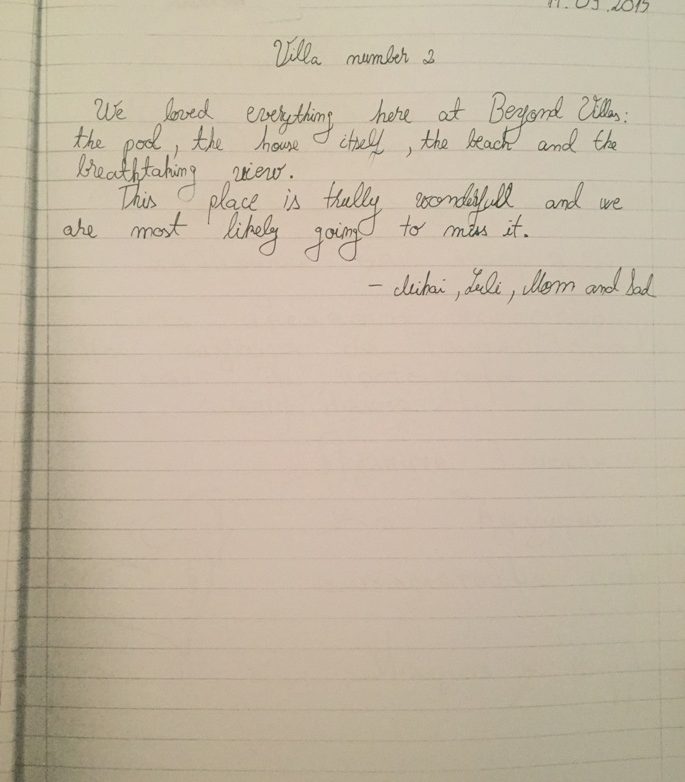 Villa number 2
We loved everything here at Beyond Villas:
the pool, the house itself, the beach and the
breathtaking view.
This place is trully wonderfull and we
are most likely going to miss it.
- Mihai, Luli, Mom and Dad